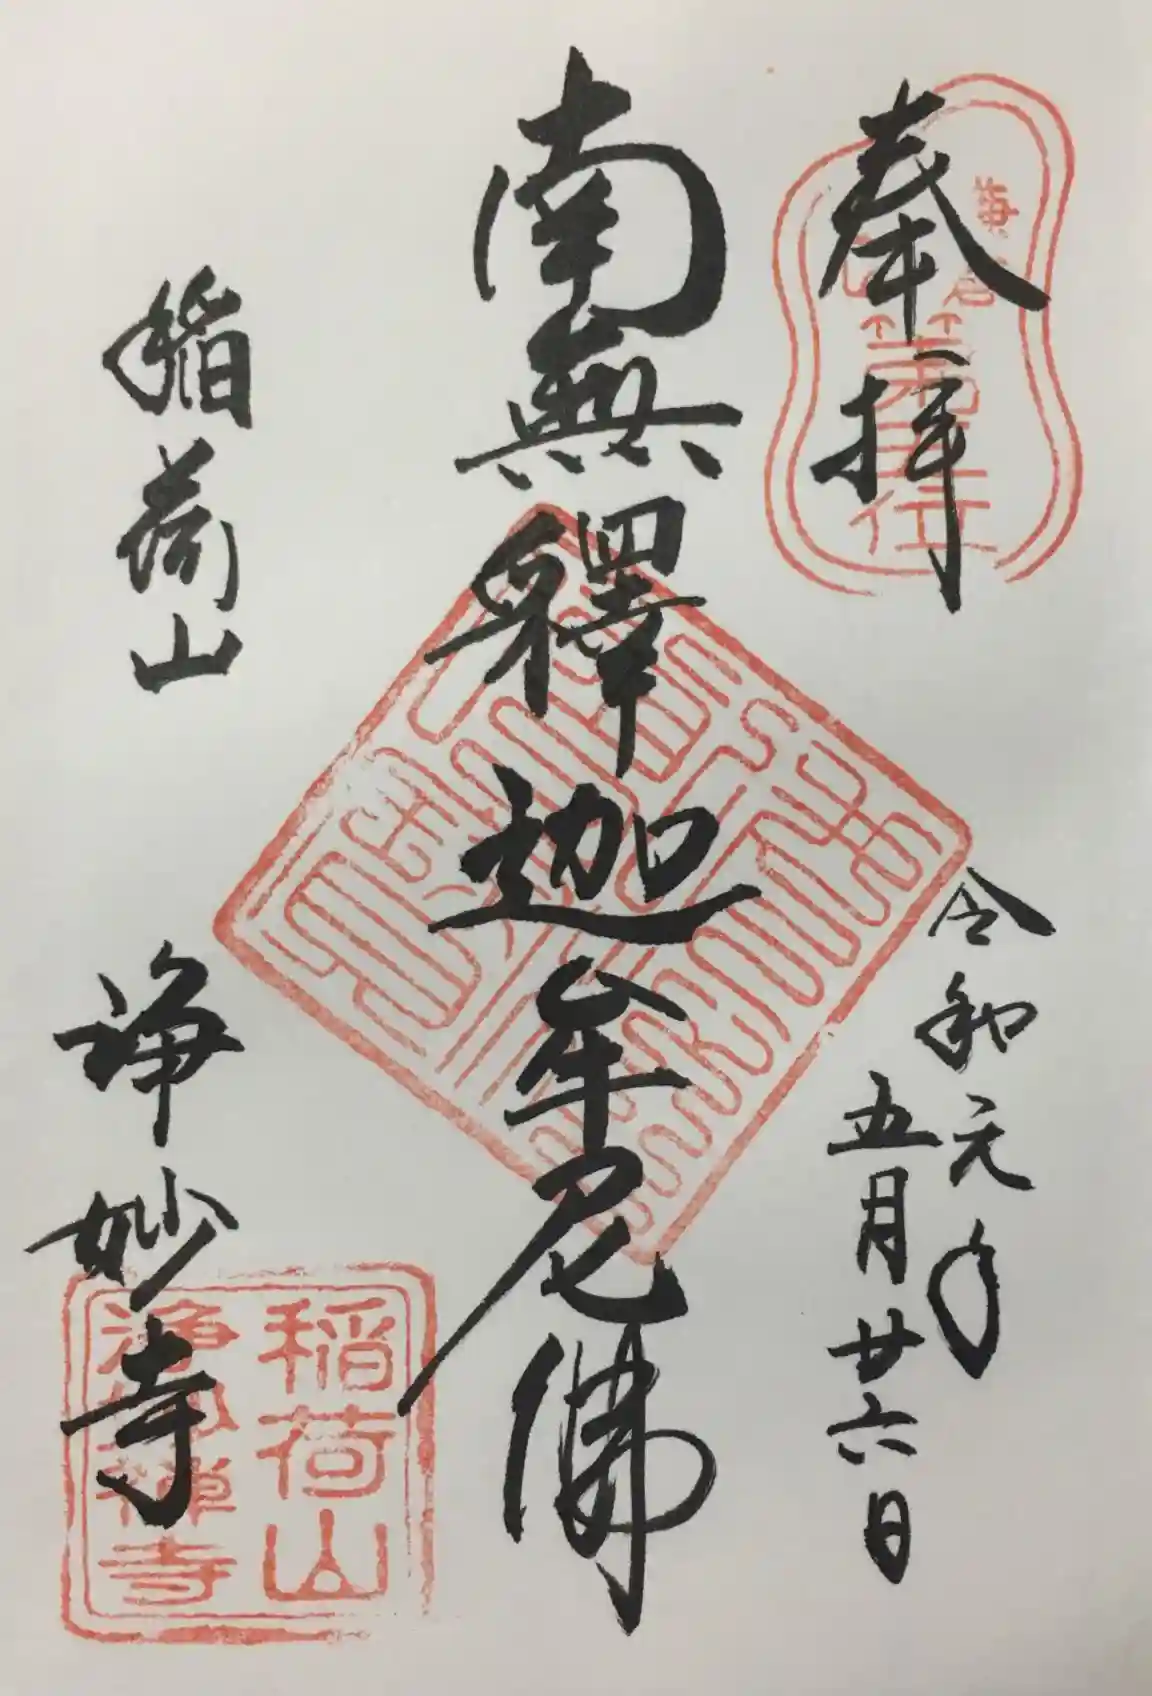 奉拝
令和元年
五月廿六日
南無釋迦牟尼佛
稲荷山
浄妙寺
鎌倉
第五
稲荷山
浄妙禅寺